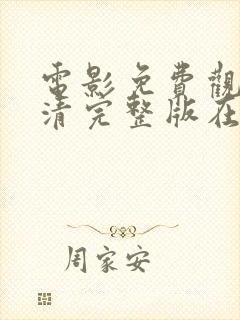 電影免費觀
清完整版在
周家安